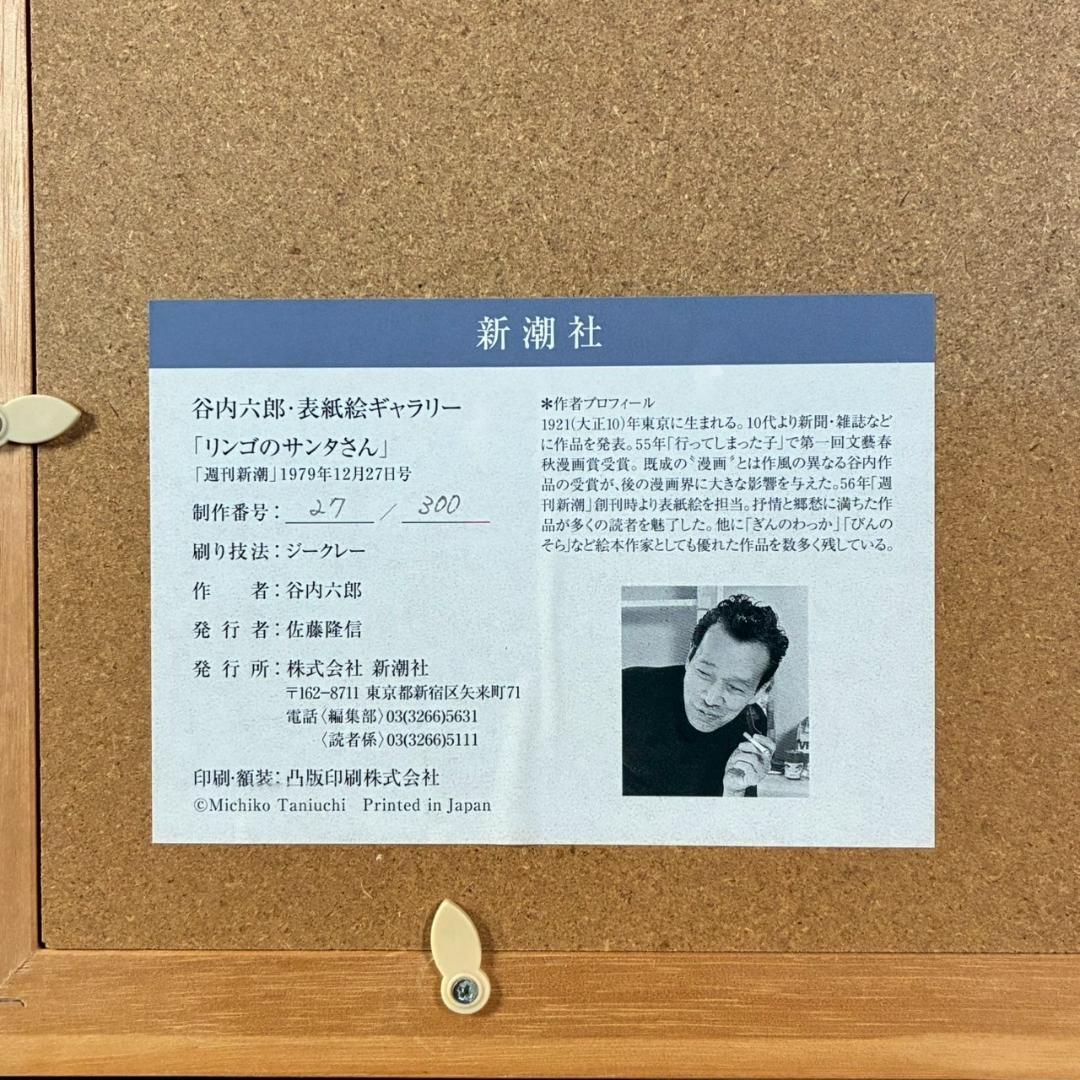 新潮社
谷内六郎・表紙絵ギャラリー
「リンゴのサンタさん」
「週刊新潮」1979年12月27日号
制作番号： 27 / 300
刷り技法：ジークレー
作　者：谷内六郎
発行者：佐藤隆信
発行所：株式会社 新潮社
〒162-8711 東京都新宿区矢来町71
電話〈編集部〉03(3266)5631
〈読者係〉03(3266)5111
印刷・額装：凸版印刷株式会社
©Michiko Taniuchi Printed in Japan
＊作者プロフィール
1921(大正10)年東京に生まれる。10代より新聞・雑誌など
に作品を発表。55年「行ってしまった子」で第一回文藝春
秋漫画賞受賞。既成の〝漫画〟とは作風の異なる谷内作
品の受賞が、後の漫画界に大きな影響を与えた。56年「週
刊新潮」創刊時より表紙絵を担当。抒情と郷愁に満ちた作
品が多くの読者を魅了した。他に「ぎんのわっか」「びんの
そら」など絵本作家としても優れた作品を数多く残している。